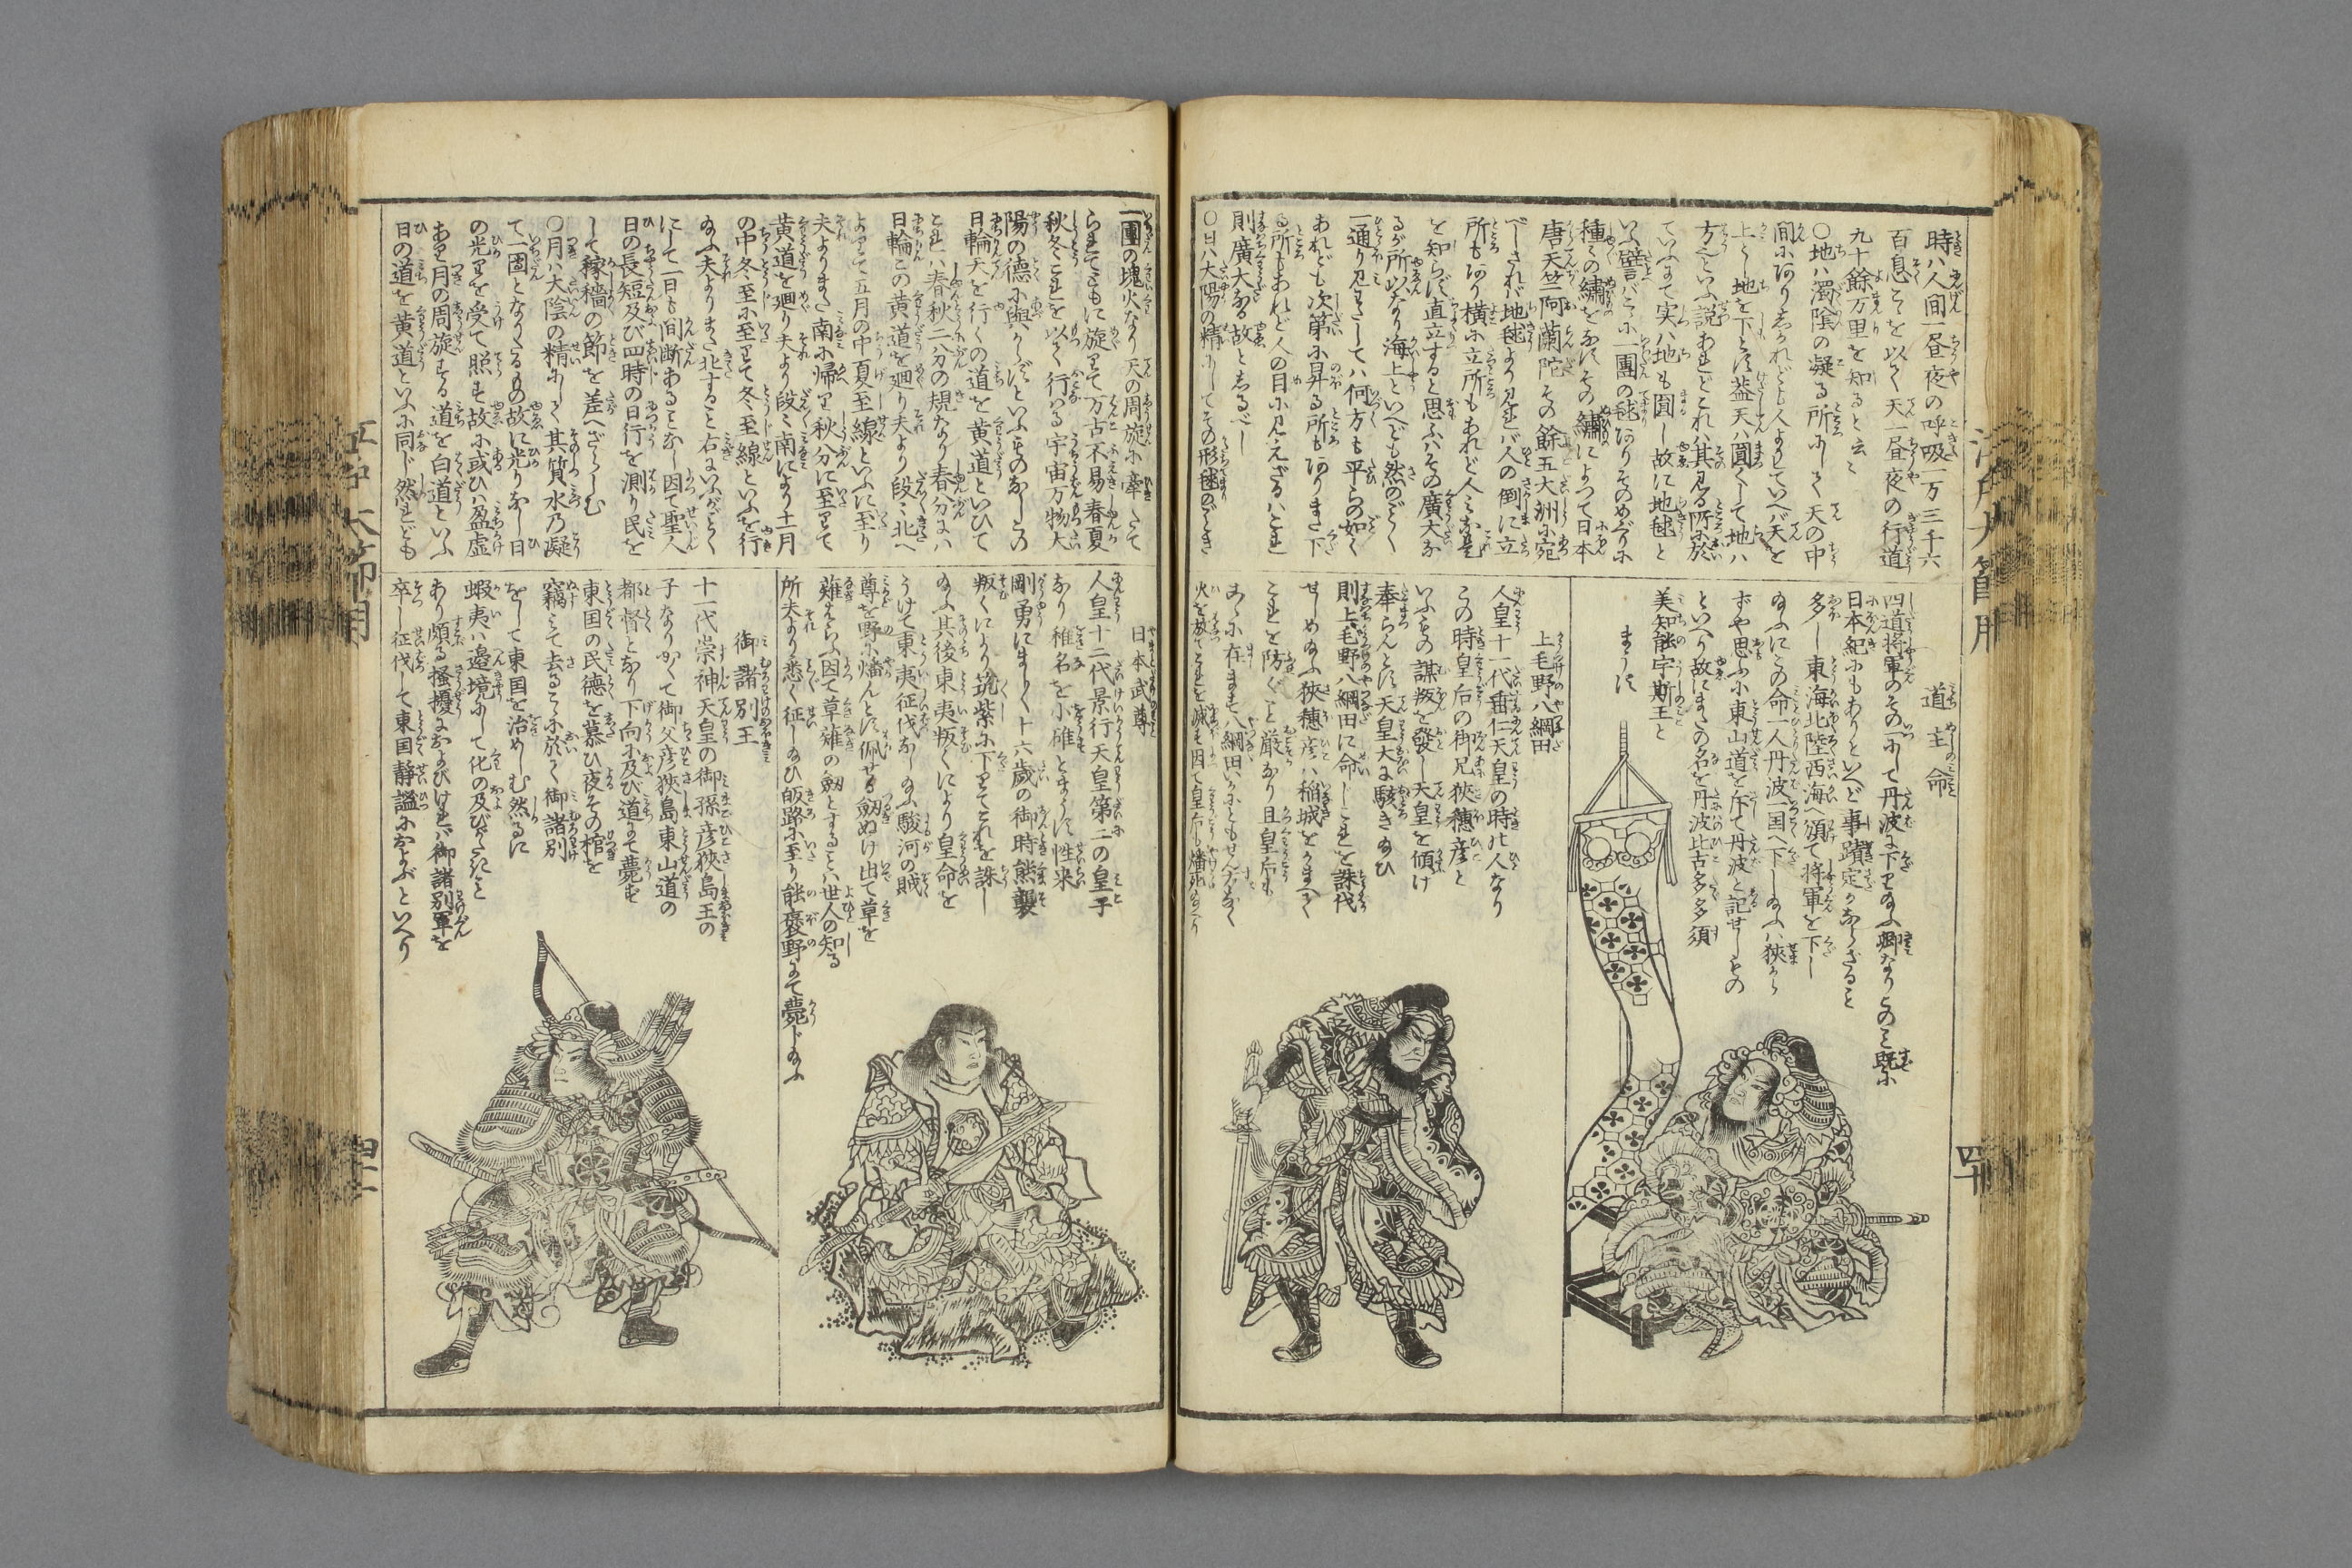 時ハ人間一昼夜の呼吸一万三千六
百息これを以て天一昼夜の行道
九十餘万里を知ると云々
〇地ハ濁陰の凝る所にして天の中
間にありしかれども人よりしていへバ天を
上とし地を下とす蓋天ハ圓くして地ハ
方なりといふ説あれどこれハ其見る所に於
ていふまで実ハ地も圓し故に地毬と
いふ譬バこゝに一團の毬ありそのめぐりに
種々の繍をなすその繍によつて日本
唐天竺阿蘭陀その餘五大洲に宛
べしされバ地毬より見れバ人の倒に立
所もあり横に立所もあれど人みな是
を知らず直立すると思ふハその廣大な
るが所以なり海上といへども然のごとく
一通り見わたしてハ何方も平らの如く
あれども次第に昇る所もありまた下
る所もあれど人の目に見えざるハこれ
則廣大なる故としるべし
〇日ハ大陽の精にしてその形毬のごとき
道主命
四道将軍のその一にして丹波に下りたまふ卿なりとのミ既に
日本紀にもありといへど事蹟定かならざること
多し東海北陸西海へ頒て将軍を下し
たまふにこの命一人丹波一国へ下したまふハ狭から
ずや思ふに東山道を斥て丹波と記せしもの
といへり故にまたの名を丹波比古多多須
美知能宇斯王と
まうす
上毛野八綱田
人皇十一代垂仁天皇の時の人なり
この時皇后の御兄狭穂彦と
いふもの謀叛を發し天皇を傾け
奉らんとす天皇大に駭きたまひ
則上毛野八綱田に命じこれを誅伐
せしめたまふ狭穂彦ハ稲城をかまへて
これを防ぐこと厳なり且皇后も
こゝに在ます八綱田いかにともせんかたなく
火を放てこれを滅す因て皇后も燔死たまへり
一團の塊火なり天の周旋に牽れて
られてともに旋りて万古不易春夏
秋冬これを以て行はる宇宙万物大
陽の徳に與からずといふものなしこの
日輪天を行くの道を黄道といひて
これハ春秋二分の規なり春分にハ
日輪この黄道を廻り夫より段々北へ
よりて五月の中夏至線といふに至り
夫よりまた南に帰り秋分に至りて
黄道を廻り夫より段々南により十一月
の中冬至に至りて冬至線といふを行
たまふ夫よりまた北すること右にいふがごとく
にして一日も间断あることなし因て聖人
日の長短及び四時の日行を測り民を
して稼穡の節を差へざらしむ
〇月ハ大陰の精にして其質水乃凝
て一団となりたるもの故に光りなし日
の光りを受て照す故に或ひハ盈虚
あり月の周旋する道を白道といふ
日の道を黄道といふに同じ然れども
日本武尊
人皇十二代景行天皇第二の皇子
なり稚名を小碓とまうす性来
剛勇にまして十六歳の御時熊襲
叛くにより筑紫に下りてこれを誅し
たまふ其後東夷叛くにより皇命を
うけて東夷征伐なしたまふ駿河の賊
尊を野に燔んとす佩せる劔ぬけ出て草を
薙はらふ因て草薙の劔とすることハ世人の知る
所夫より悉く征したまひ皈路に至り能褒野にて薨じたまふ
御諸別王
十一代崇神天皇の御孫彦狭島王の
子なりかくて御父彦狭島東山道の
都督となり下向に及び道にて薨ず
東国の民徳を慕ひ夜その棺を
竊ミて去るこゝに於て御諸別
をして東国を治めしむ然るに
蝦夷ハ邉境にして化の及びがたきこと
あり頗る掻擾におよびけれバ御諸別軍を
卒し征伐して東国静謐におよぶといへり
四十